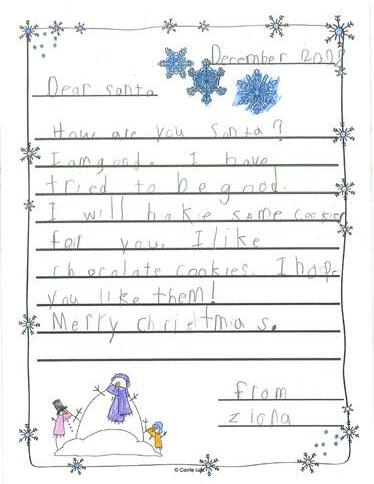 December 200
Dear santa
How are you Santa?
I am good. I have
tried to be good.
I will bakie some cookies
for you. I like
chocolate cookies. I hope
you like them!
Merry christmas.
from
ziona
© Carrie